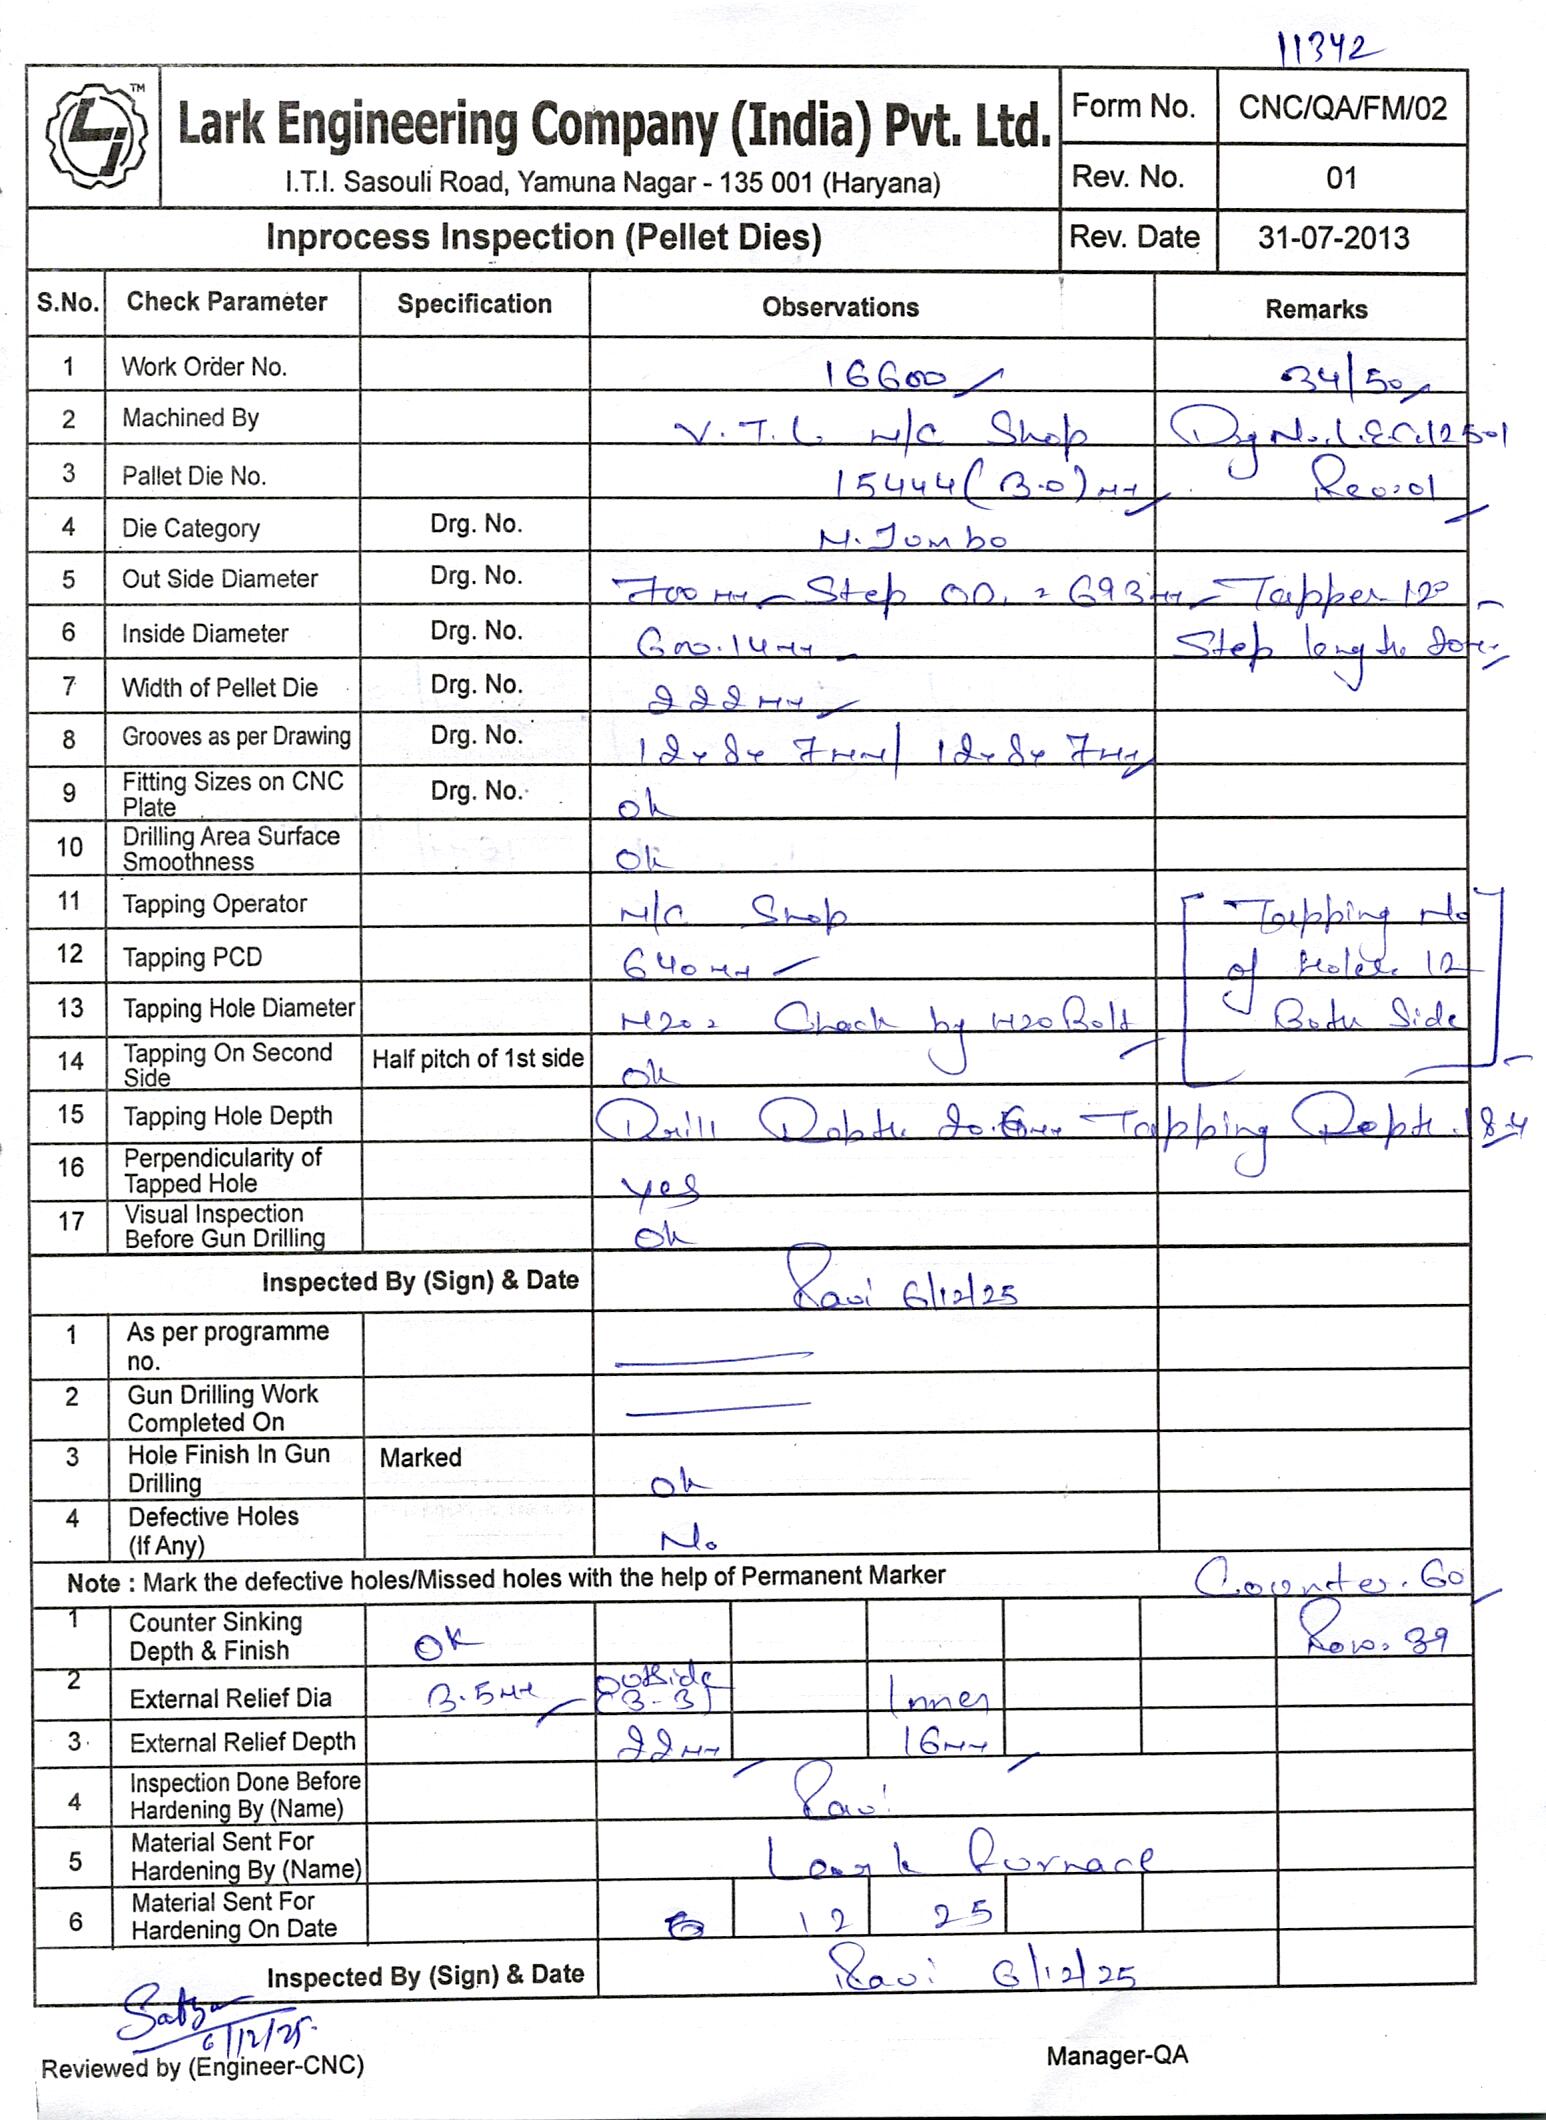 11342
TM
Lark Engineering Company (India) Pvt. Ltd.
I.T.I. Sasouli Road, Yamuna Nagar - 135 001 (Haryana)
Form No. CNC/QA/FM/02
Rev. No. 01
Inprocess Inspection (Pellet Dies) Rev. Date 31-07-2013
S.No. Check Parameter Specification Observations Remarks
1 Work Order No. 16600 34/50
2 Machined By V.T.L M/C Shop Drg No. L.E.C.12501
3 Pallet Die No. 15444 (3.0) mm Rev:01
4 Die Category Drg. No. M. Jumbo
5 Out Side Diameter Drg. No. 700 mm Step OD. = 693 mm Tapper 12°
6 Inside Diameter Drg. No. 600.14 mm Step length 20mm
7 Width of Pellet Die Drg. No. 222 mm
8 Grooves as per Drawing Drg. No. 12x8x 7mm/ 12x8x 7mm
9 Fitting Sizes on CNC Plate Drg. No. ok
10 Drilling Area Surface Smoothness ok
11 Tapping Operator M/C Shop Tapping No
12 Tapping PCD 640 mm of Holes 12
13 Tapping Hole Diameter M20 = Check by M20 Bolt Both Side
14 Tapping On Second Side Half pitch of 1st side ok
15 Tapping Hole Depth Drill Depth Tapping Depth
16 Perpendicularity of Tapped Hole yes
17 Visual Inspection Before Gun Drilling ok
Inspected By (Sign) & Date Ravi 6/12/25
1 As per programme no.
2 Gun Drilling Work Completed On
3 Hole Finish In Gun Drilling Marked ok
4 Defective Holes (If Any) No
Note : Mark the defective holes/Missed holes with the help of Permanent Marker Counter. 60
1 Counter Sinking Depth & Finish OK Row. 39
2 External Relief Dia 3.5 mm outside (3-3) Inner
3 External Relief Depth 22 mm 16 mm
4 Inspection Done Before Hardening By (Name) Ravi
5 Material Sent For Hardening By (Name) Furnace
6 Material Sent For Hardening On Date 6 12 25
Inspected By (Sign) & Date Ravi 6/12/25
6/12/25
Reviewed by (Engineer-CNC) Manager-QA